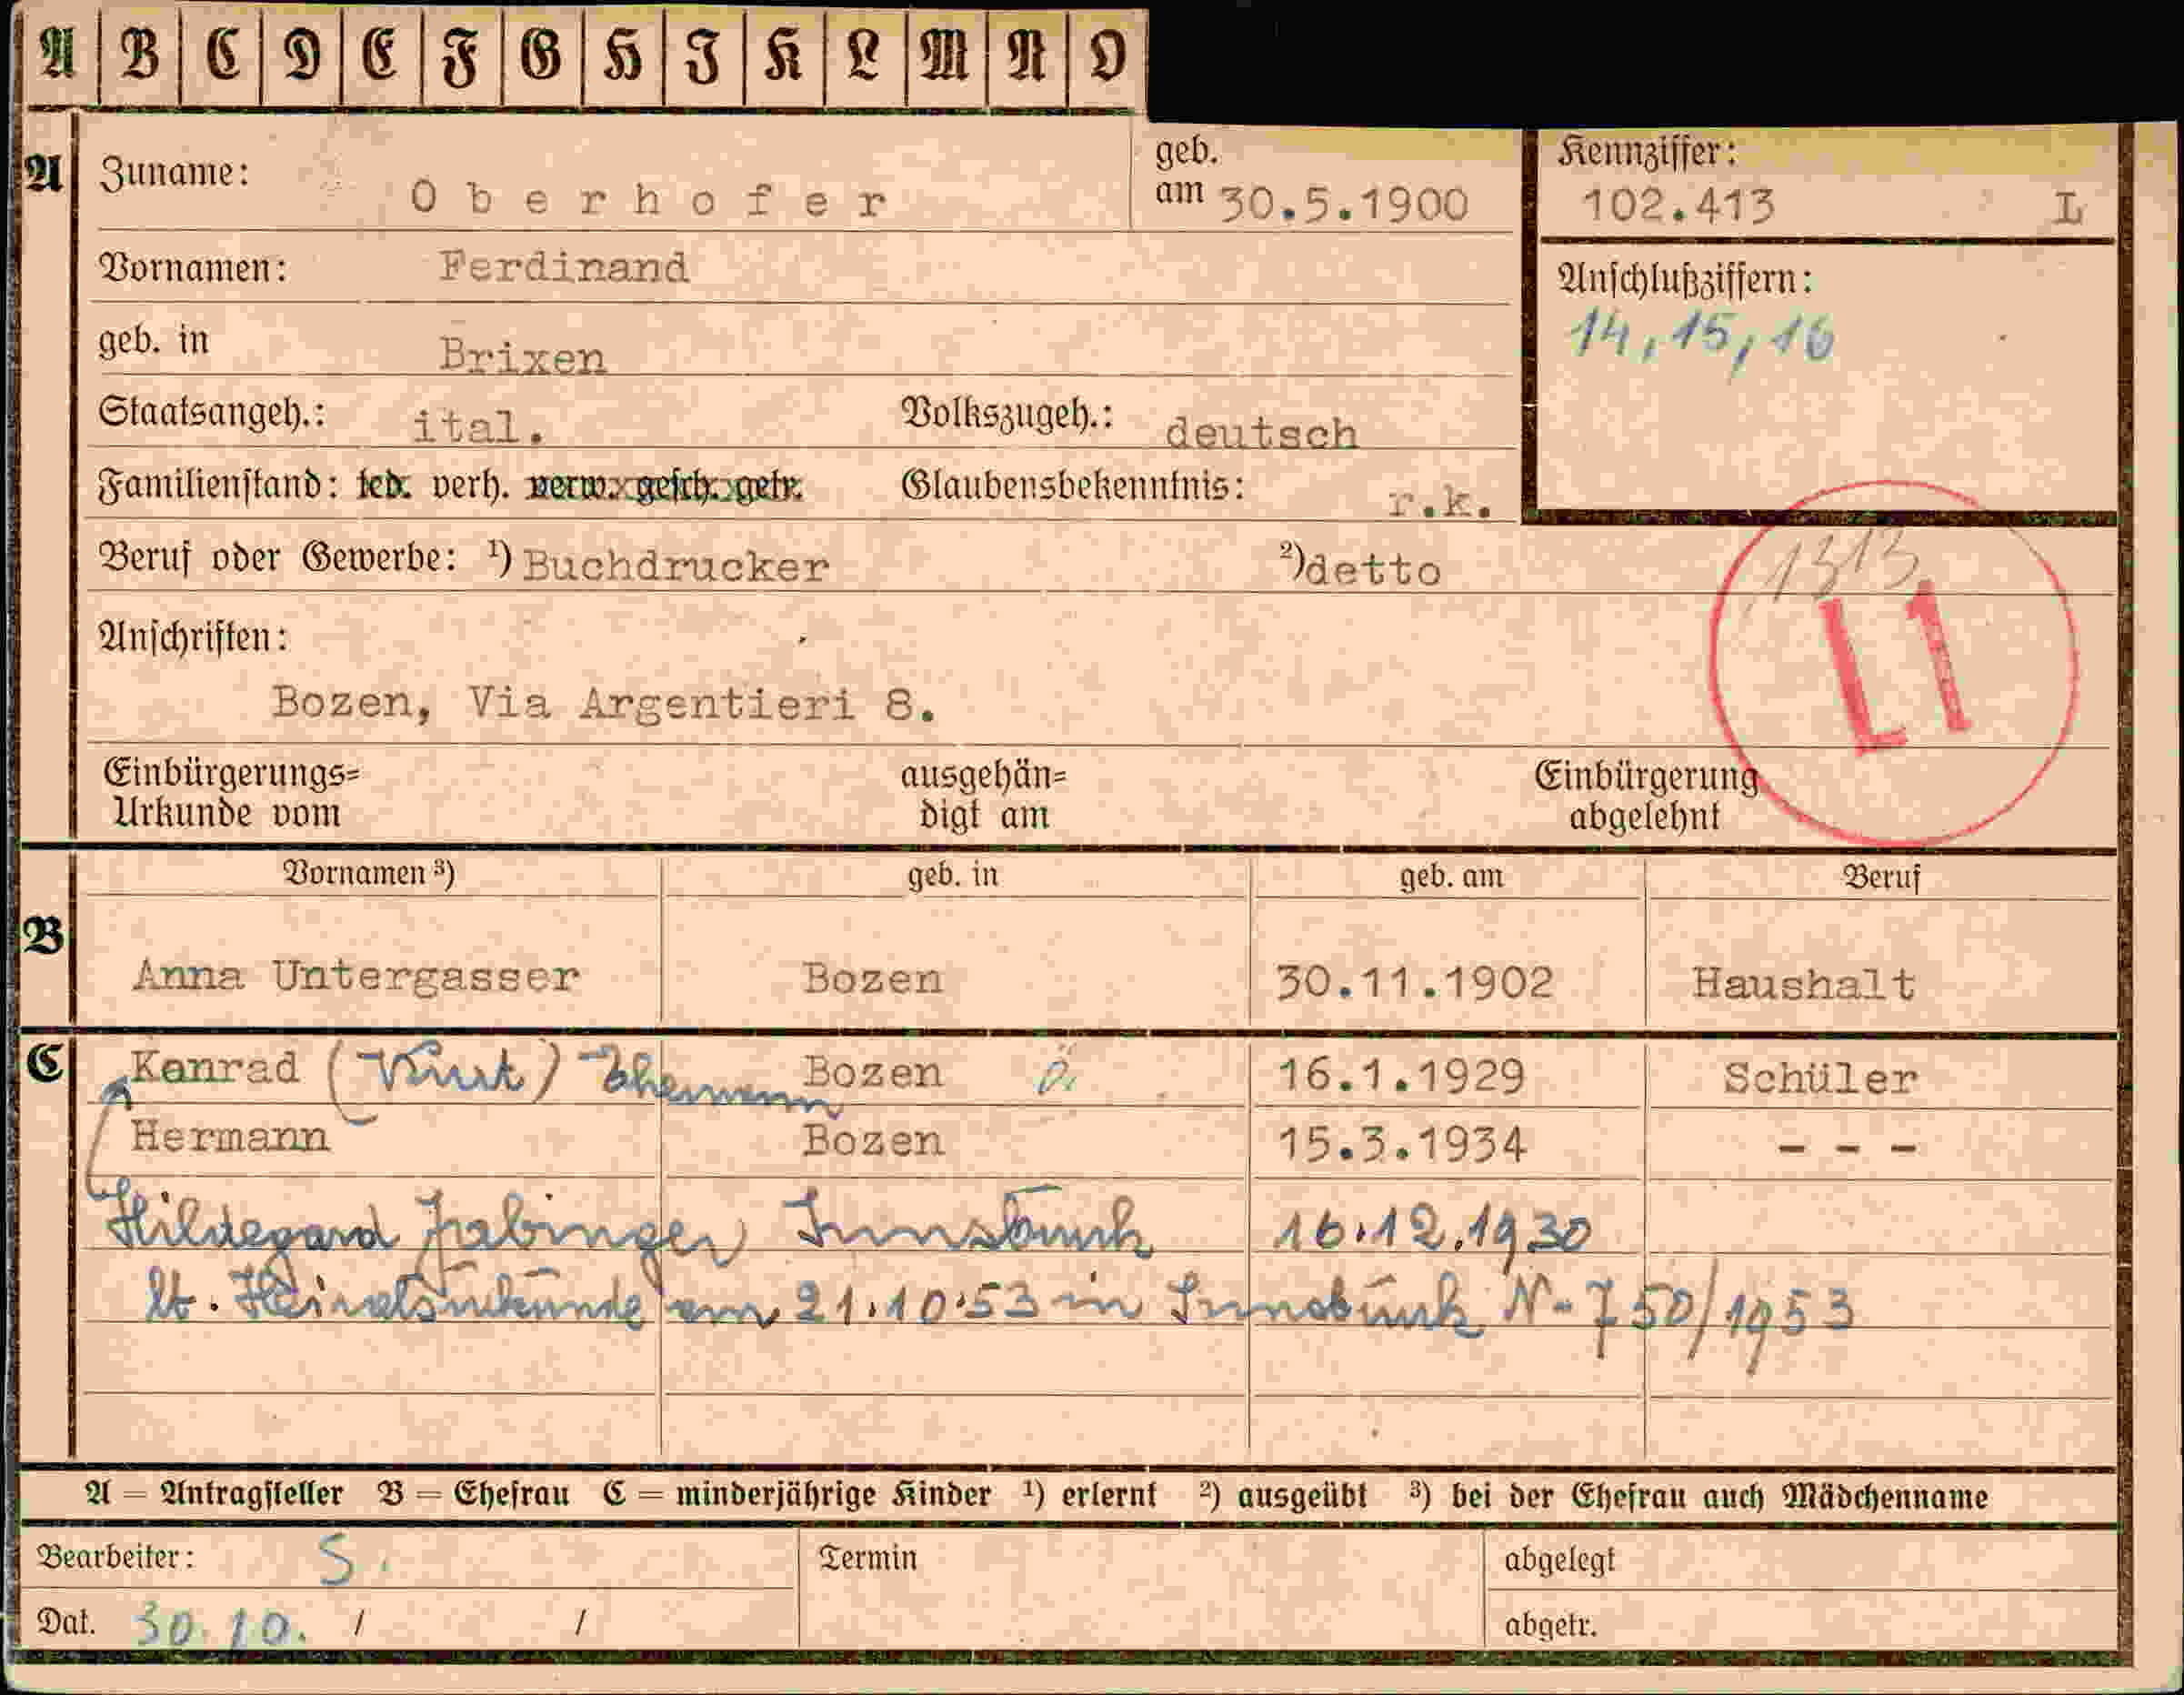 A B C D E F G H I K L M N O
A Zuname: Oberhofer
geb. am 30.5.1900
Kennziffer: 102.413 L
Vornamen: Ferdinand
Anschlußziffern: 14, 15, 16
geb. in Brixen
Staatsangeh.: ital. Volkszugeh.: deutsch
Familienstand: led. verh. verw. gesch. getr. Glaubensbekenntnis: r.k.
Beruf oder Gewerbe: ¹) Buchdrucker ²) detto
1313
L1
Anschriften:
Bozen, Via Argentieri 8.
Einbürgerungs=
Urkunde vom
ausgehän=
digt am
Einbürgerung
abgelehnt
Vornamen ³) geb. in geb. am Beruf
B Anna Untergasser Bozen 30.11.1902 Haushalt
C Konrad (Kurt) Ehemann Bozen 16.1.1929 Schüler
Hermann Bozen 15.3.1934 - - -
Hildegard Innsbruck 16.12.1930
lt. Heiratsurkunde am 21.10.53 in Innsbruck N- 750/1953
A = Antragsteller B = Ehefrau C = minderjährige Kinder ¹) erlernt ²) ausgeübt ³) bei der Ehefrau auch Mädchenname
Bearbeiter: S. Termin abgelegt
Dat. 30.10. / / abgetr.